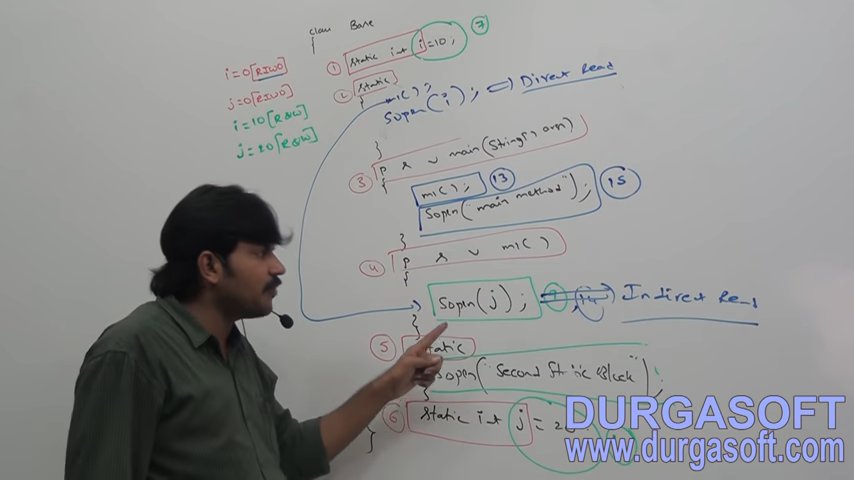 class Base
{
i=0[RIWO]
j=0[RIWO]
i=10[R&W]
j=20[R&W]
① static int i=10; ⑦
② static
{
m1();
Sopln(i); => Direct Read
}
③ p s v main(String[] args)
{
m1(); ⑬
Sopln("main method"); ⑮
}
④ p s v m1()
{
Sopln(j); ⑨ ⑭ Indirect Read
}
⑤ static
Sopln("Second Static Block");
}
⑥ static int j=20
}
DURGASOFT
www.durgasoft.com